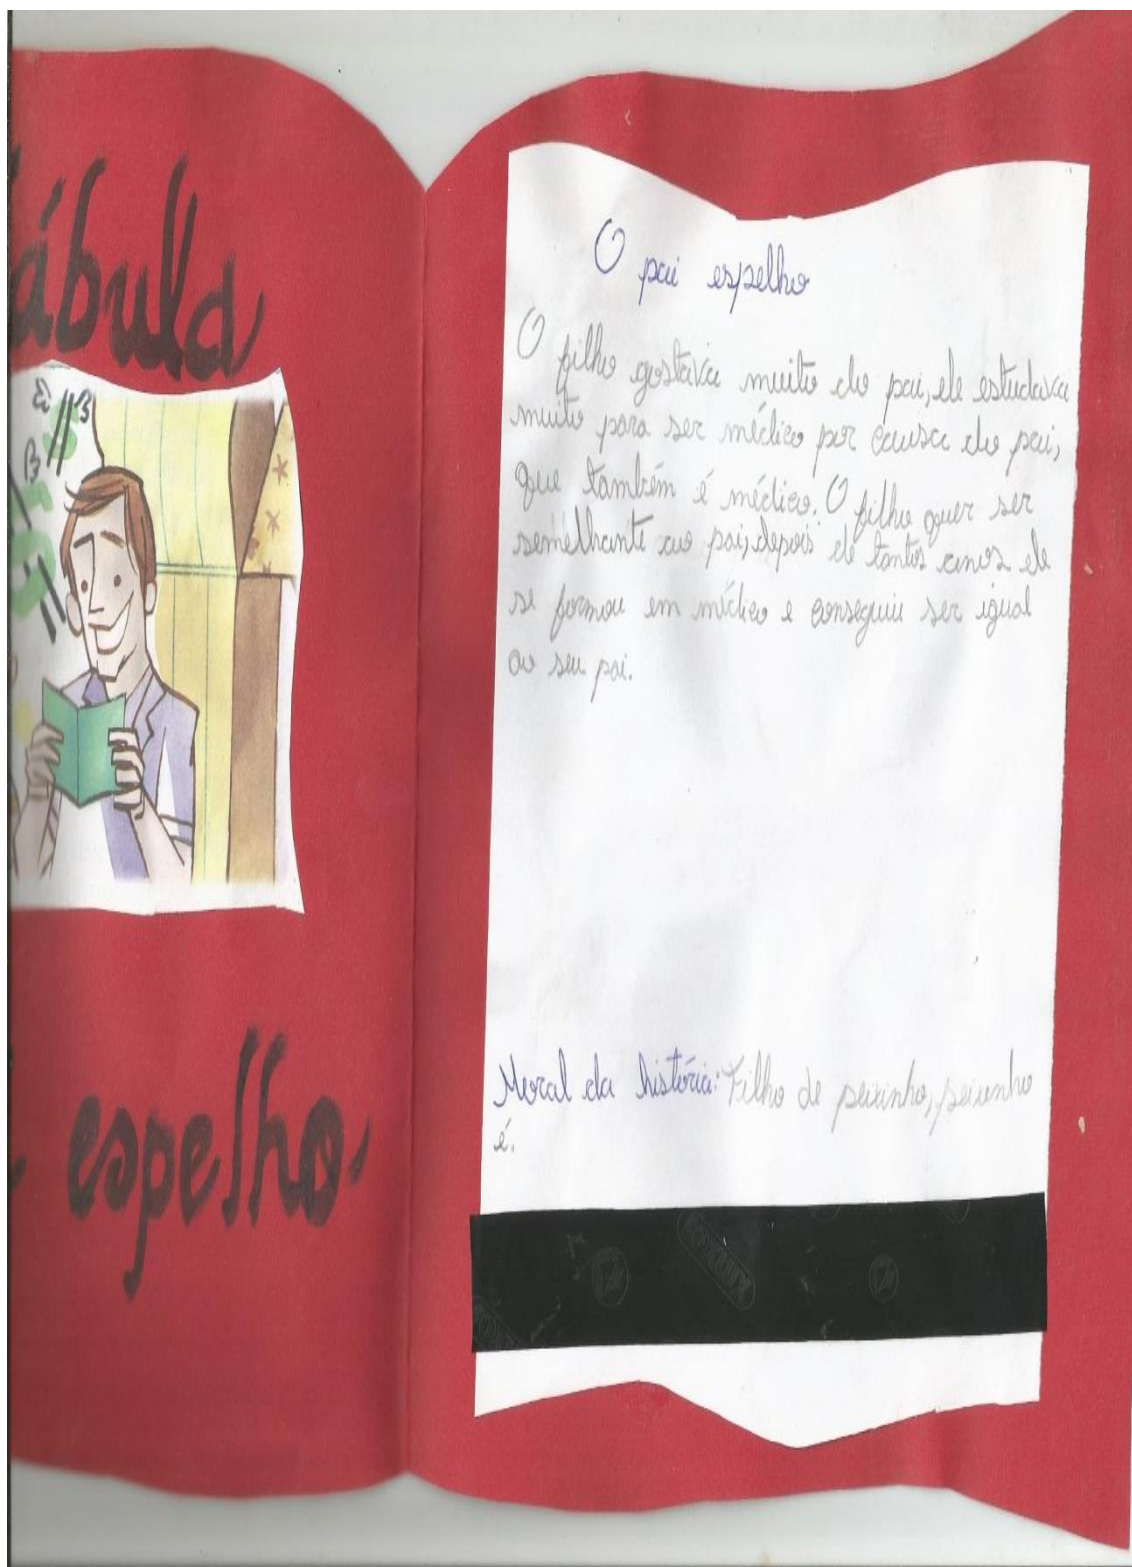 ábula
espelho
O pai espelho
O filho gostava muito do pai, ele estudava
muito para ser médico por causa do pai,
que também é médico. O filho quer ser
semelhante ao pai, depois de tantos anos ele
se formou em médico e conseguiu ser igual
ao seu pai.
Moral da história: Filho de peixinho, peixinho
é.